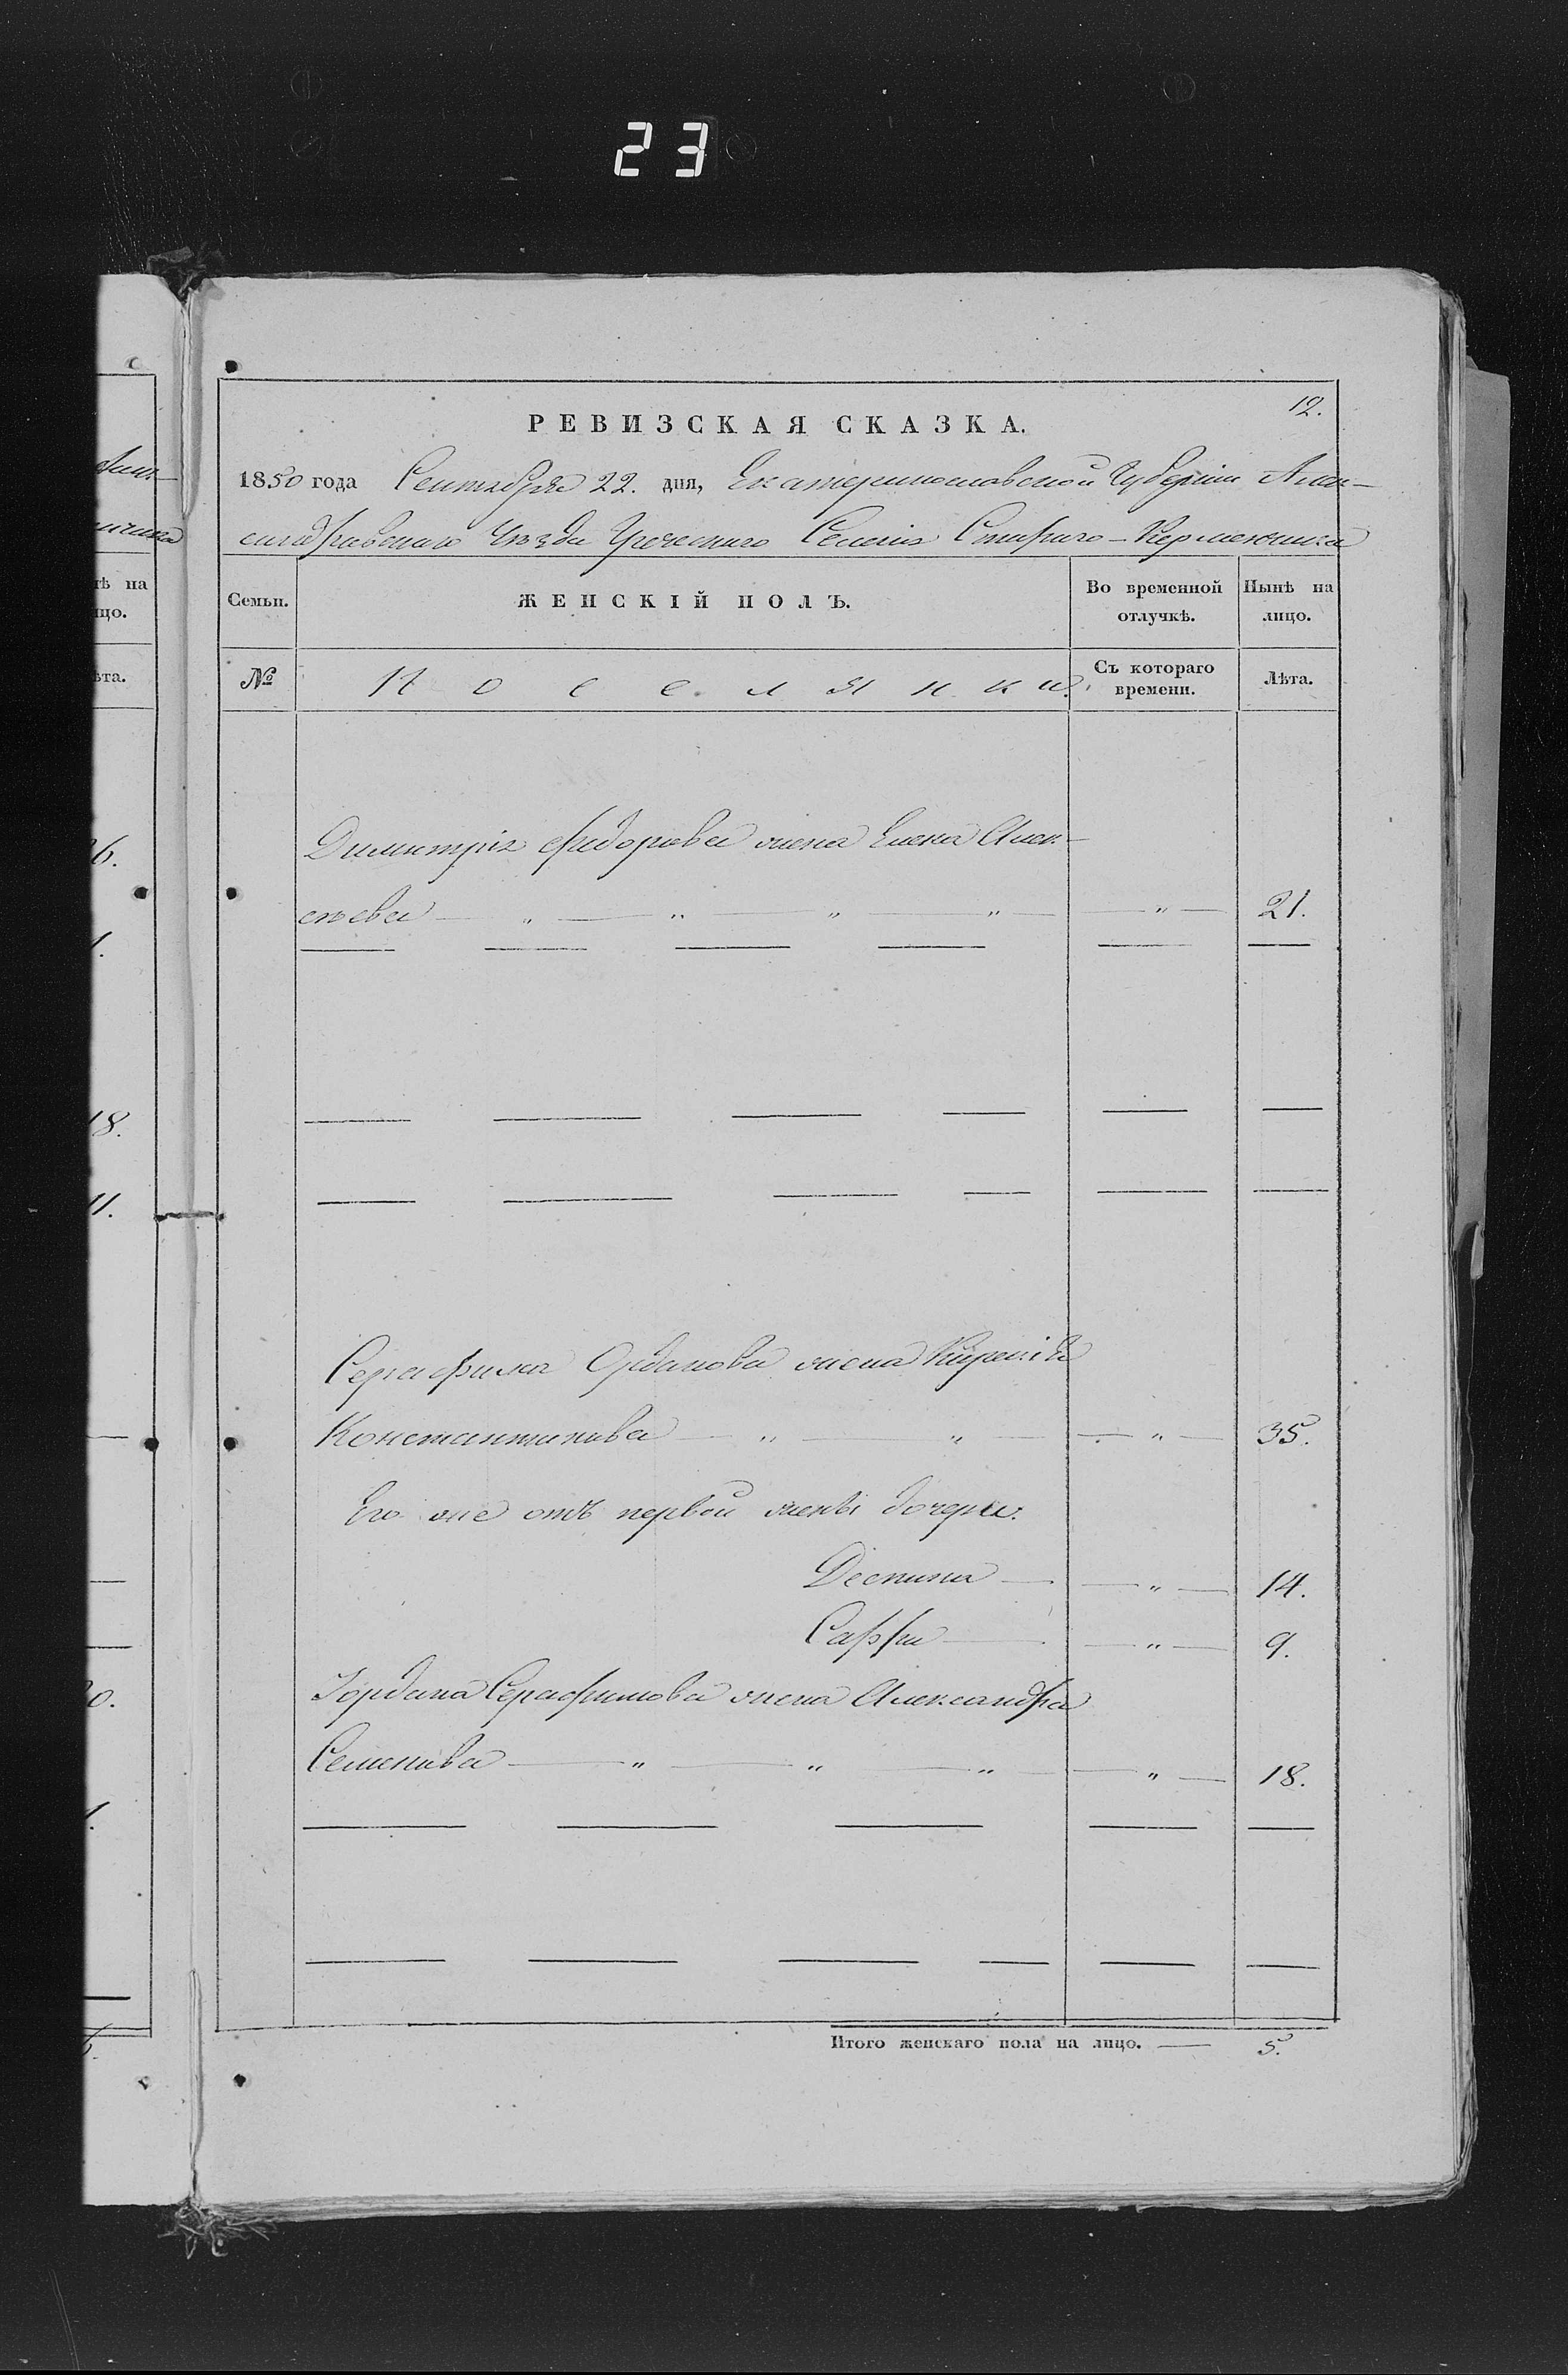 23
12.
РЕВИЗСКАЯ СКАЗКА.
1850 года Сентября 22. дня, Екатеринославской Губерніи Алек-
сандровскаго Уѣзда Греческаго Селенія Стараго-Керменчика
Семьи. ЖЕНСКІЙ ПОЛЪ. Во временной отлучкѣ. Нынѣ на лицо.
№ Поселянки. Съ котораго времени. Лѣта.
Димитрія Фидорова жена Елена Алек-
сѣева — " — " — " — " — — " — 21.
Серафима Орданова жена Кирекія
Константинова — " — " — " — 35.
Его же отъ первой жены дочери.
Деспина — — " — 14.
Сафра — — " — 9.
Іордана Серафимова жена Александра
Семенова — " — " — " — — " — 18.
Итого женскаго пола на лицо. — 5.
тѣ на
ицо.
ѣта.
26.
1.
18.
11.